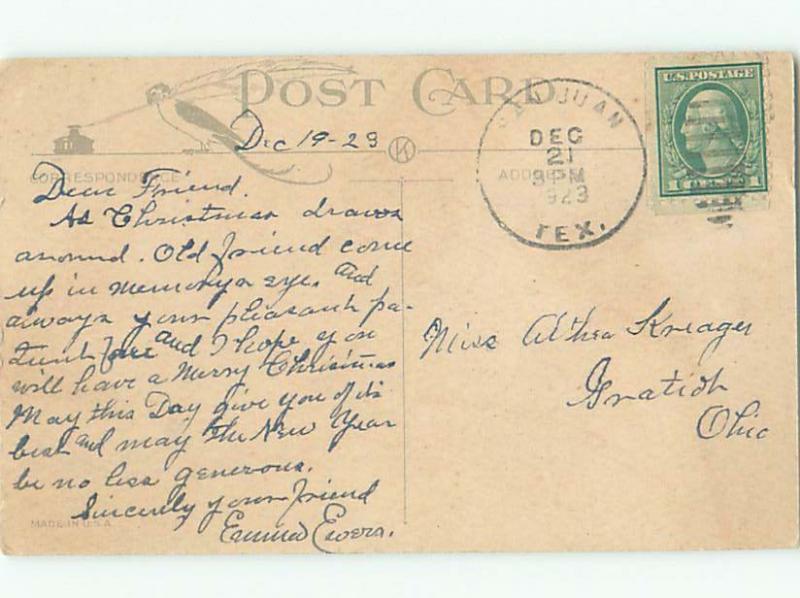 POST CARD
Dec 19-23
K
CORRESPONDENCE
ADDRESS
SAN JUAN
DEC
21
3 PM
1923
TEX.
U.S. POSTAGE
1 CENTS 1
Dear Friend.
As Christmas draws
around. Old friend come
up in memorys eye. and
always your pleasant pa-
tient face and I hope you
will have a Merry Christmas
May this Day give you of its
best and may the New Year
be no less generous.
Sincerly your friend
Emma Ewers.
MADE IN U.S.A.
Miss Althea Kreager
Gratiot
Ohio